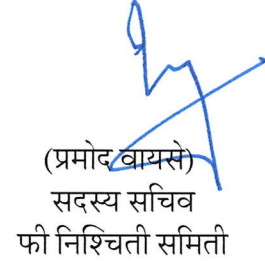 (प्रमोद वायसे)
सदस्य सचिव
फी निश्चिती समिती